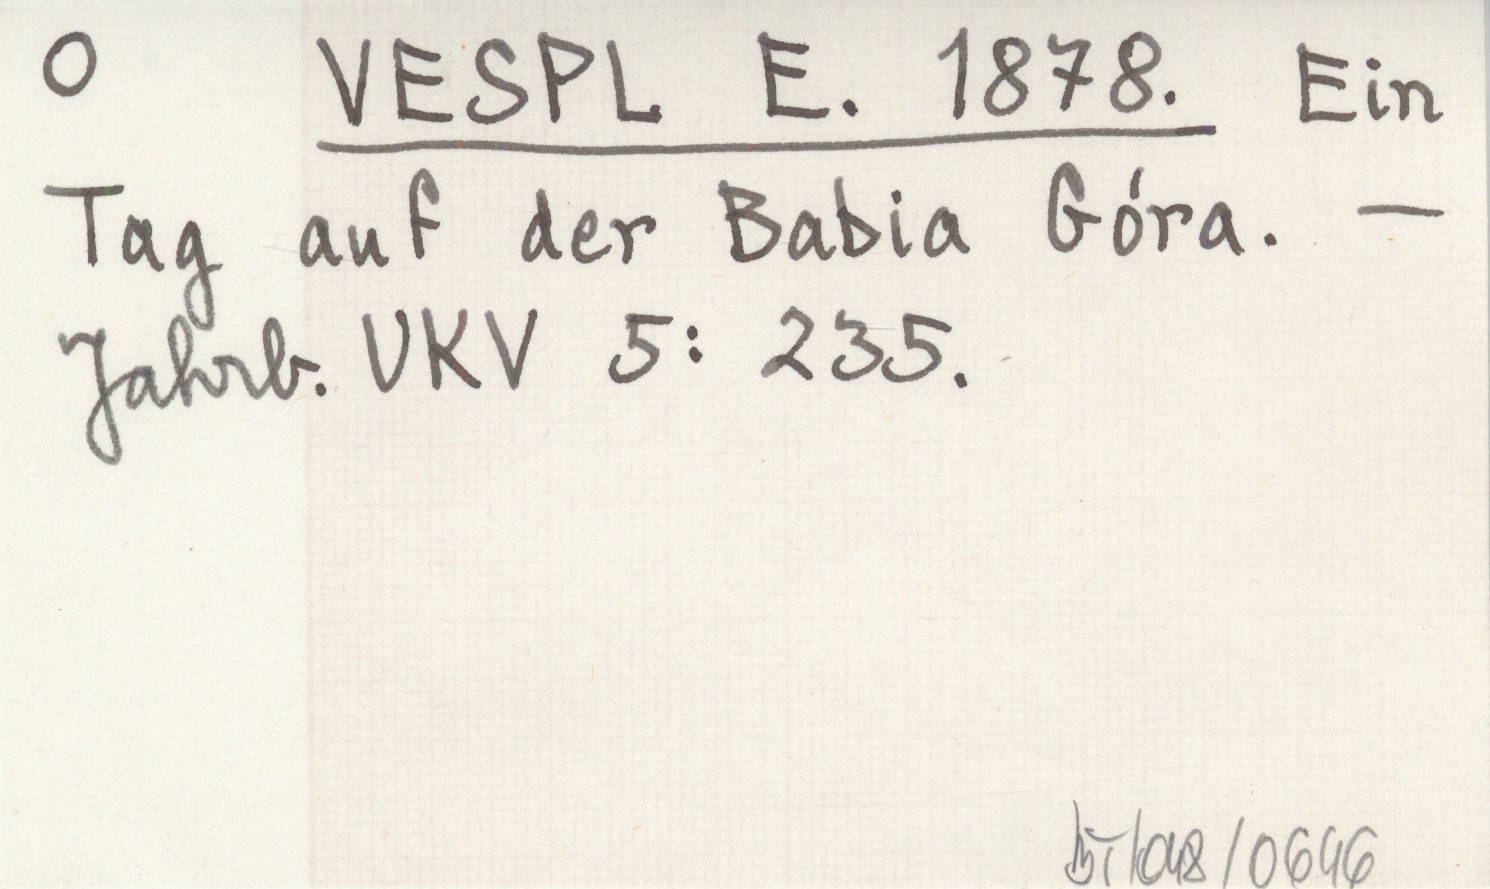 O VESPL E. 1878. Ein
Tag auf der Babia Góra. —
Jahrb. UKV 5: 235.